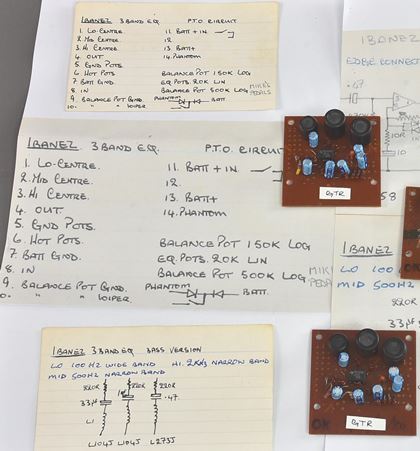 IBANEZ 3 BAND EQ. P.T.O. CIRCUIT
1. LO-CENTRE. 11. BATT + IN
2. MID CENTRE. 12.
3. HI CENTRE. 13. BATT+
4. OUT 14. PHANTOM.
5. GND POTS
6. HOT POTS BALANCE POT 150K LOG
7. BATT GND. EQ. POTS 20K LIN
8. IN BALANCE POT 500K LOG MIKE'S PEDALS
9. BALANCE POT GND. PHANTOM BATT
10. " " WIPER.
IBANEZ. 3 BAND EQ. P.T.O. CIRCUIT
1. LO-CENTRE. 11. BATT + IN.
2. MID CENTRE. 12.
3. HI CENTRE. 13. BATT+
4. OUT. 14. PHANTOM
5. GND POTS.
6. HOT POTS. BALANCE POT 150K LOG
7. BATT GND. EQ. POTS. 20K LIN
8. IN BALANCE POT 500K LOG
9. BALANCE POT GND. PHANTOM BATT.
0. " " WIPER.
IBANEZ
EDGE CONNECT
.47
10R
GTR
58
IBANEZ
LO 100
MID 500HZ
33µF
GTR
OK
IBANEZ 3 BAND EQ BASS VERSION
LO 100 HZ WIDE BAND HI. 2KHz NARROW BAND
MID 500HZ NARROW BAND
220R 220R 220R
33µF 1µF .47
L1
L104J L104J L273J